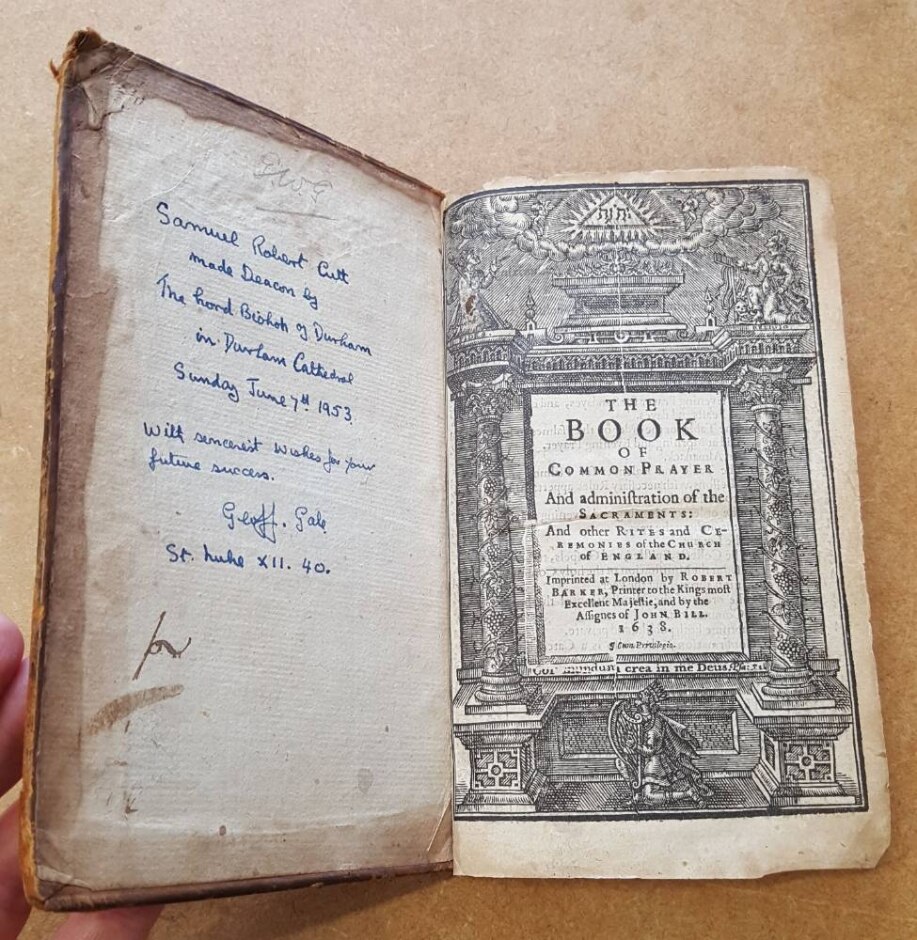 Samuel Robert Cutt
made Deacon by
The Lord Bishop of Durham
in Durham Cathedral
Sunday June 7th 1953.
With sincerest wishes for your
future success.
Geoff. Gale
St. Luke XII. 40.
יהוה
THE
BOOK
OF
COMMON PRAYER
And adminiſtration of the
SACRAMENTS:
And other RITES and CE-
REMONIES of the CHURCH
of ENGLAND.
Imprinted at London by ROBERT
BARKER, Printer to the Kings moſt
Excellent Majeſtie, and by the
Aſſignes of JOHN BILL.
1638.
Cum Privilegio.
Cor mundum crea in me Deus